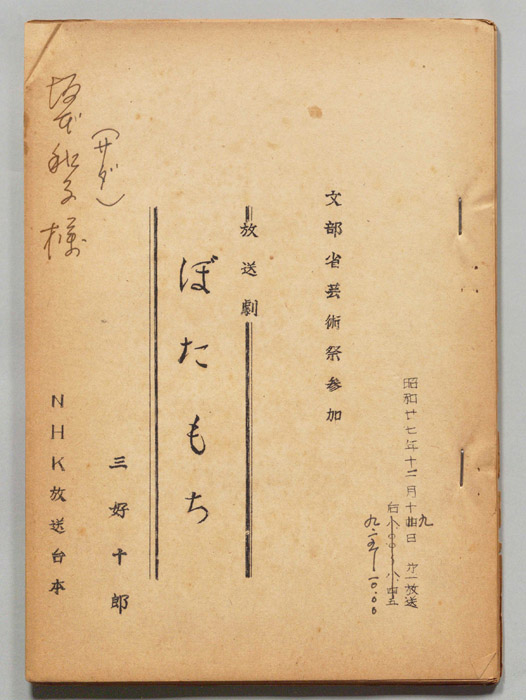 昭和廿七年十二月十九日 第一放送
后八・〇〇―八・四五
九・一五―一〇・〇〇
文部省芸術祭参加
放送劇
ぼたもち
三好十郎
(サダ)
坂本和子様
NHK放送台本